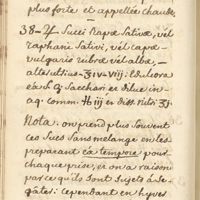 plus forte et appellée chaude,
38-24 Succi Rapæ Sativæ, vel
raphani Sativi, vel cepæ
vulgaris rubræ vel albæ,
ʒiv-viij: Edulcora
Sacchari et dilue in
aq. comm. ℔iij
Nota: on prend plus souvent
ces Sucs Sans melange en les
preparant pour
chaque prise, et on a raison
parce qu'ils sont Sujets à Se
gâter: cependant en hyver